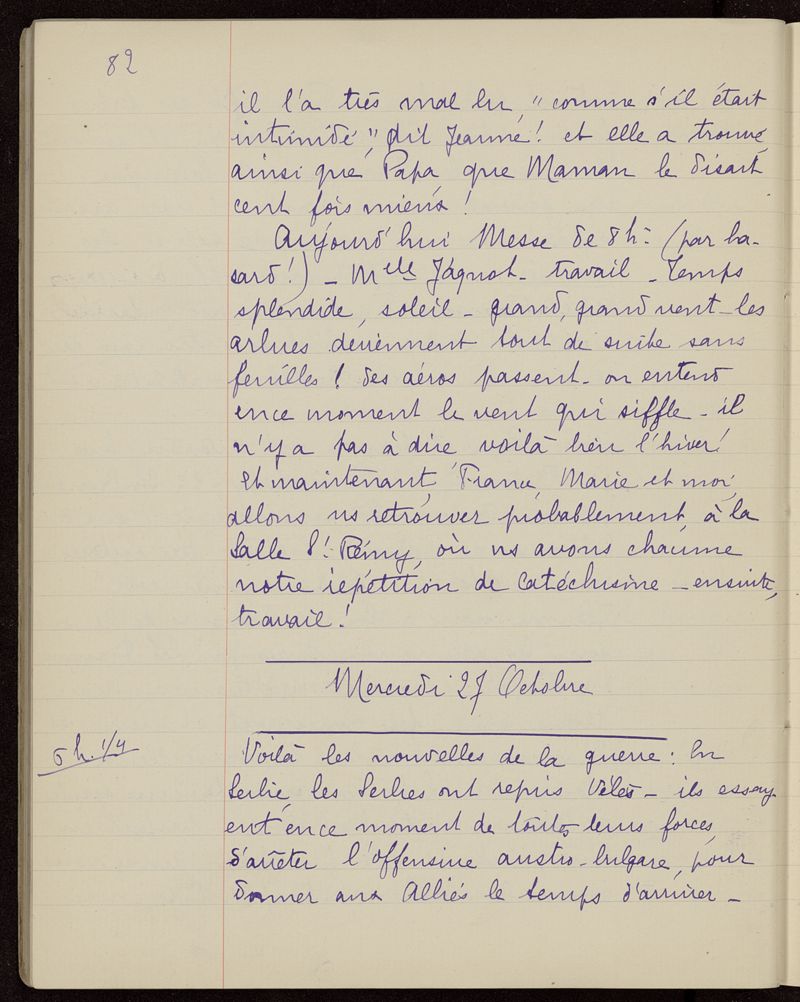 82
il l'a très mal lu, "comme s'il était
intimidé", dit Jeanne! et elle a trouvé,
ainsi que Papa, que Maman le disait
cent fois mieux!
Aujourd'hui Messe de 8h - (par ha-
sard!) - Melle Jagnot - travail - Temps
splendide, soleil - grand, grand vent - les
arbres deviennent tout de suite sans
feuilles! des aéros passent - on entend
en ce moment le vent qui siffle - il
n'y a pas à dire voilà bien l'hiver!
et maintenant, France, Marie et moi,
allons ns retrouver probablement, à la
Salle St Rémy, où ns avons chacune
notre répétition de catéchisme - ensuite,
travail!
Mercredi 27 Octobre
5 h. 1/4
Voilà les nouvelles de la guerre: En
Serbie, les Serbes ont repris Vélès - ils essay-
ent en ce moment de toutes leurs forces,
d'arrêter l'offensive austro-bulgare, pour
donner aux Alliés le temps d'arriver -